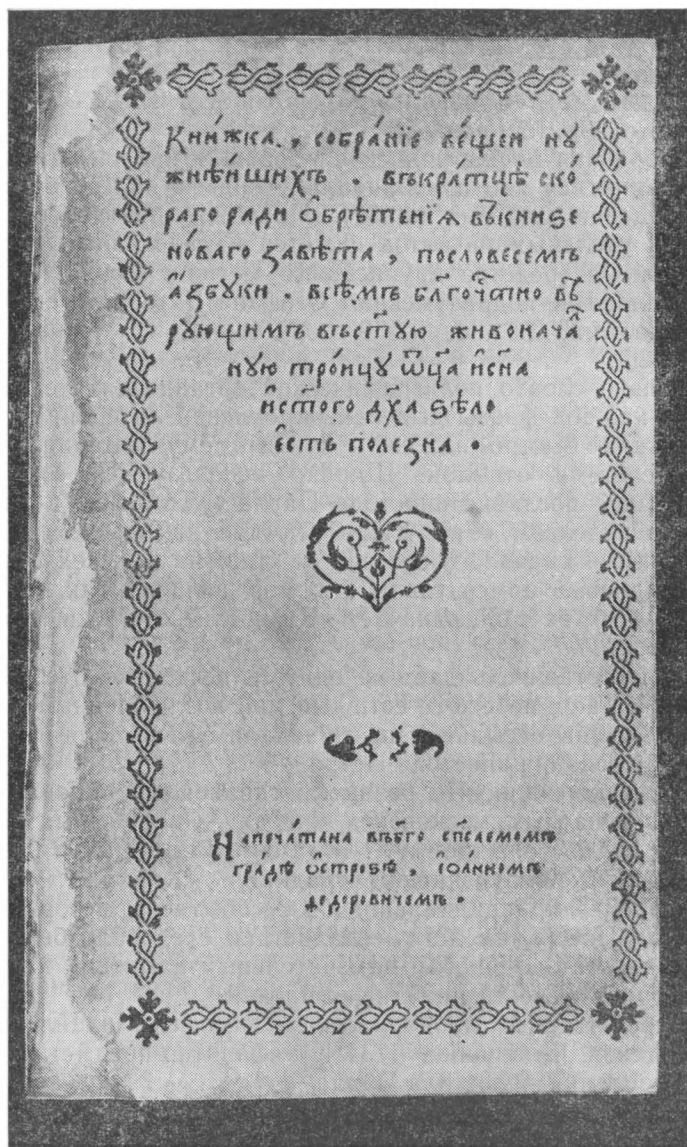 Кни́жка , собра́нїе ве́щеи ну
жнѣ́ишихъ . въкра́тцѣ ско́
раго ради ѻ҆брѣ́тенїѧ въ книзе
но́ваго завѣ́та , пословесемъ
а҆́збꙋки . всѣ́мъ бл҃гоче́стно вѣ́
рꙋющимъ въст҃ꙋю живонача́
нꙋю тро́ицꙋ ѿц҃а ѝсн҃а
ѝст҃ого дх҃а ѕѣло
е҆́сть полезна .
Напеча́тана въ б҃го сп҃саемомъ
гра́дѣ ѻ҆строзѣ , і҆ѡа́нномъ
ѳедоровичемъ .